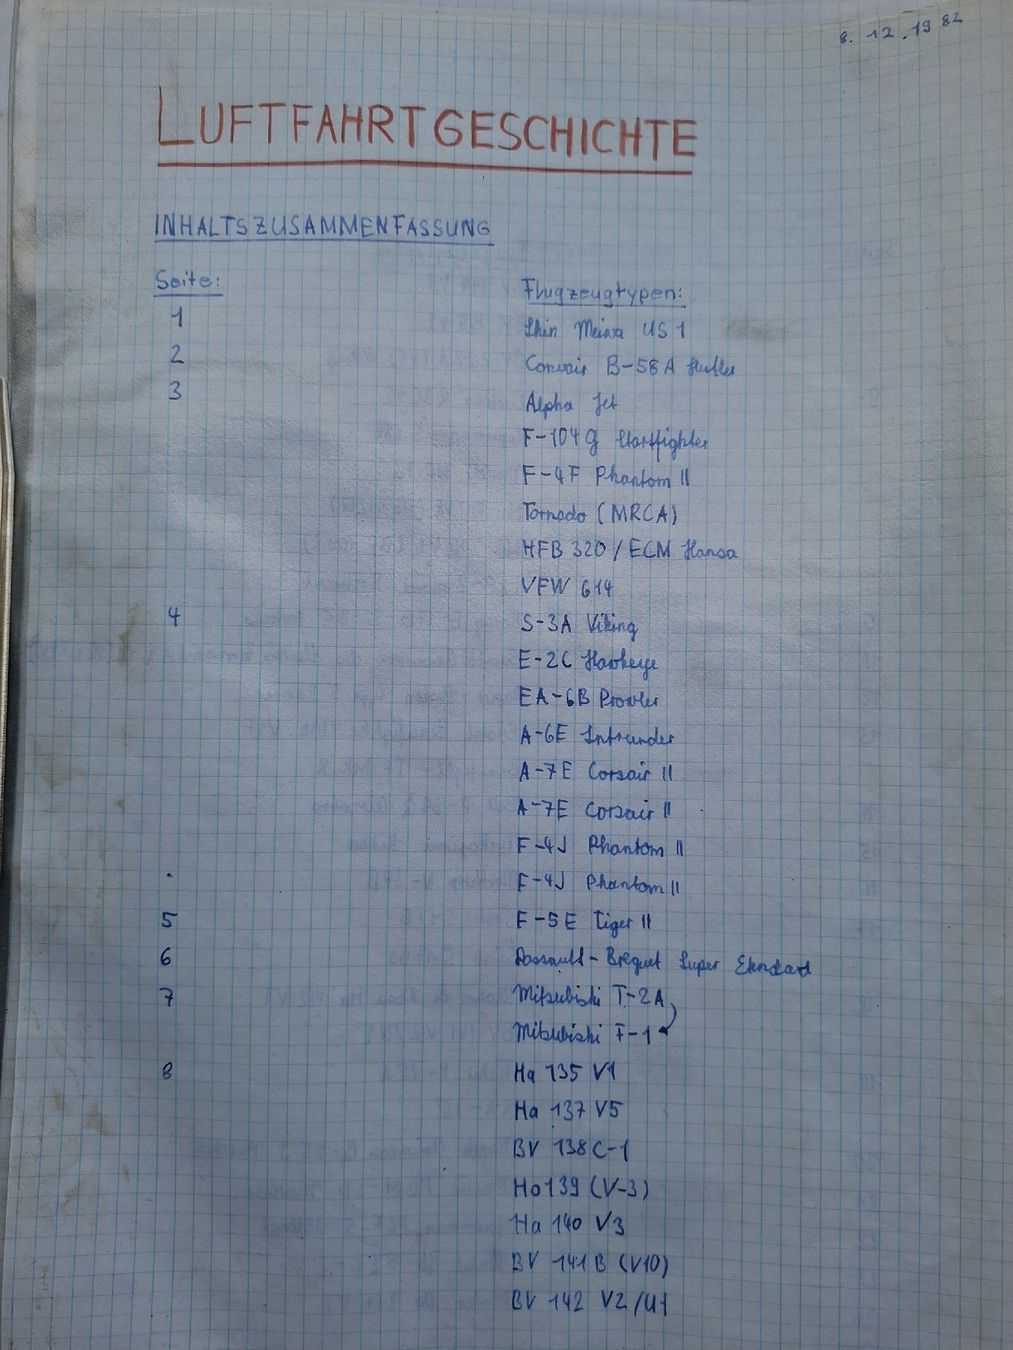 8. 12. 1982
LUFTFAHRTGESCHICHTE
INHALTSZUSAMMENFASSUNG
Seite: Flugzeugtypen:
1 Shin Meiwa US 1
2 Convair B-58A Hustler
3 Alpha Jet
F-104 G Starfighter
F-4F Phantom II
Tornado (MRCA)
HFB 320 / ECM Hansa
VFW 614
4 S-3A Viking
E-2C Hawkeye
EA-6B Prowler
A-6E Intrunder
A-7E Corsair II
A-7E Corsair II
F-4J Phantom II
F-4J Phantom II
5 F-5E Tiger II
6 Dassault-Breguet Super Etendard
7 Mitsubishi T-2A
Mitsubishi F-1
8 Ha 135 V1
Ha 137 V5
BV 138 C-1
Ha 139 (V-3)
Ha 140 V3
BV 141 B (V10)
BV 142 V2/U1